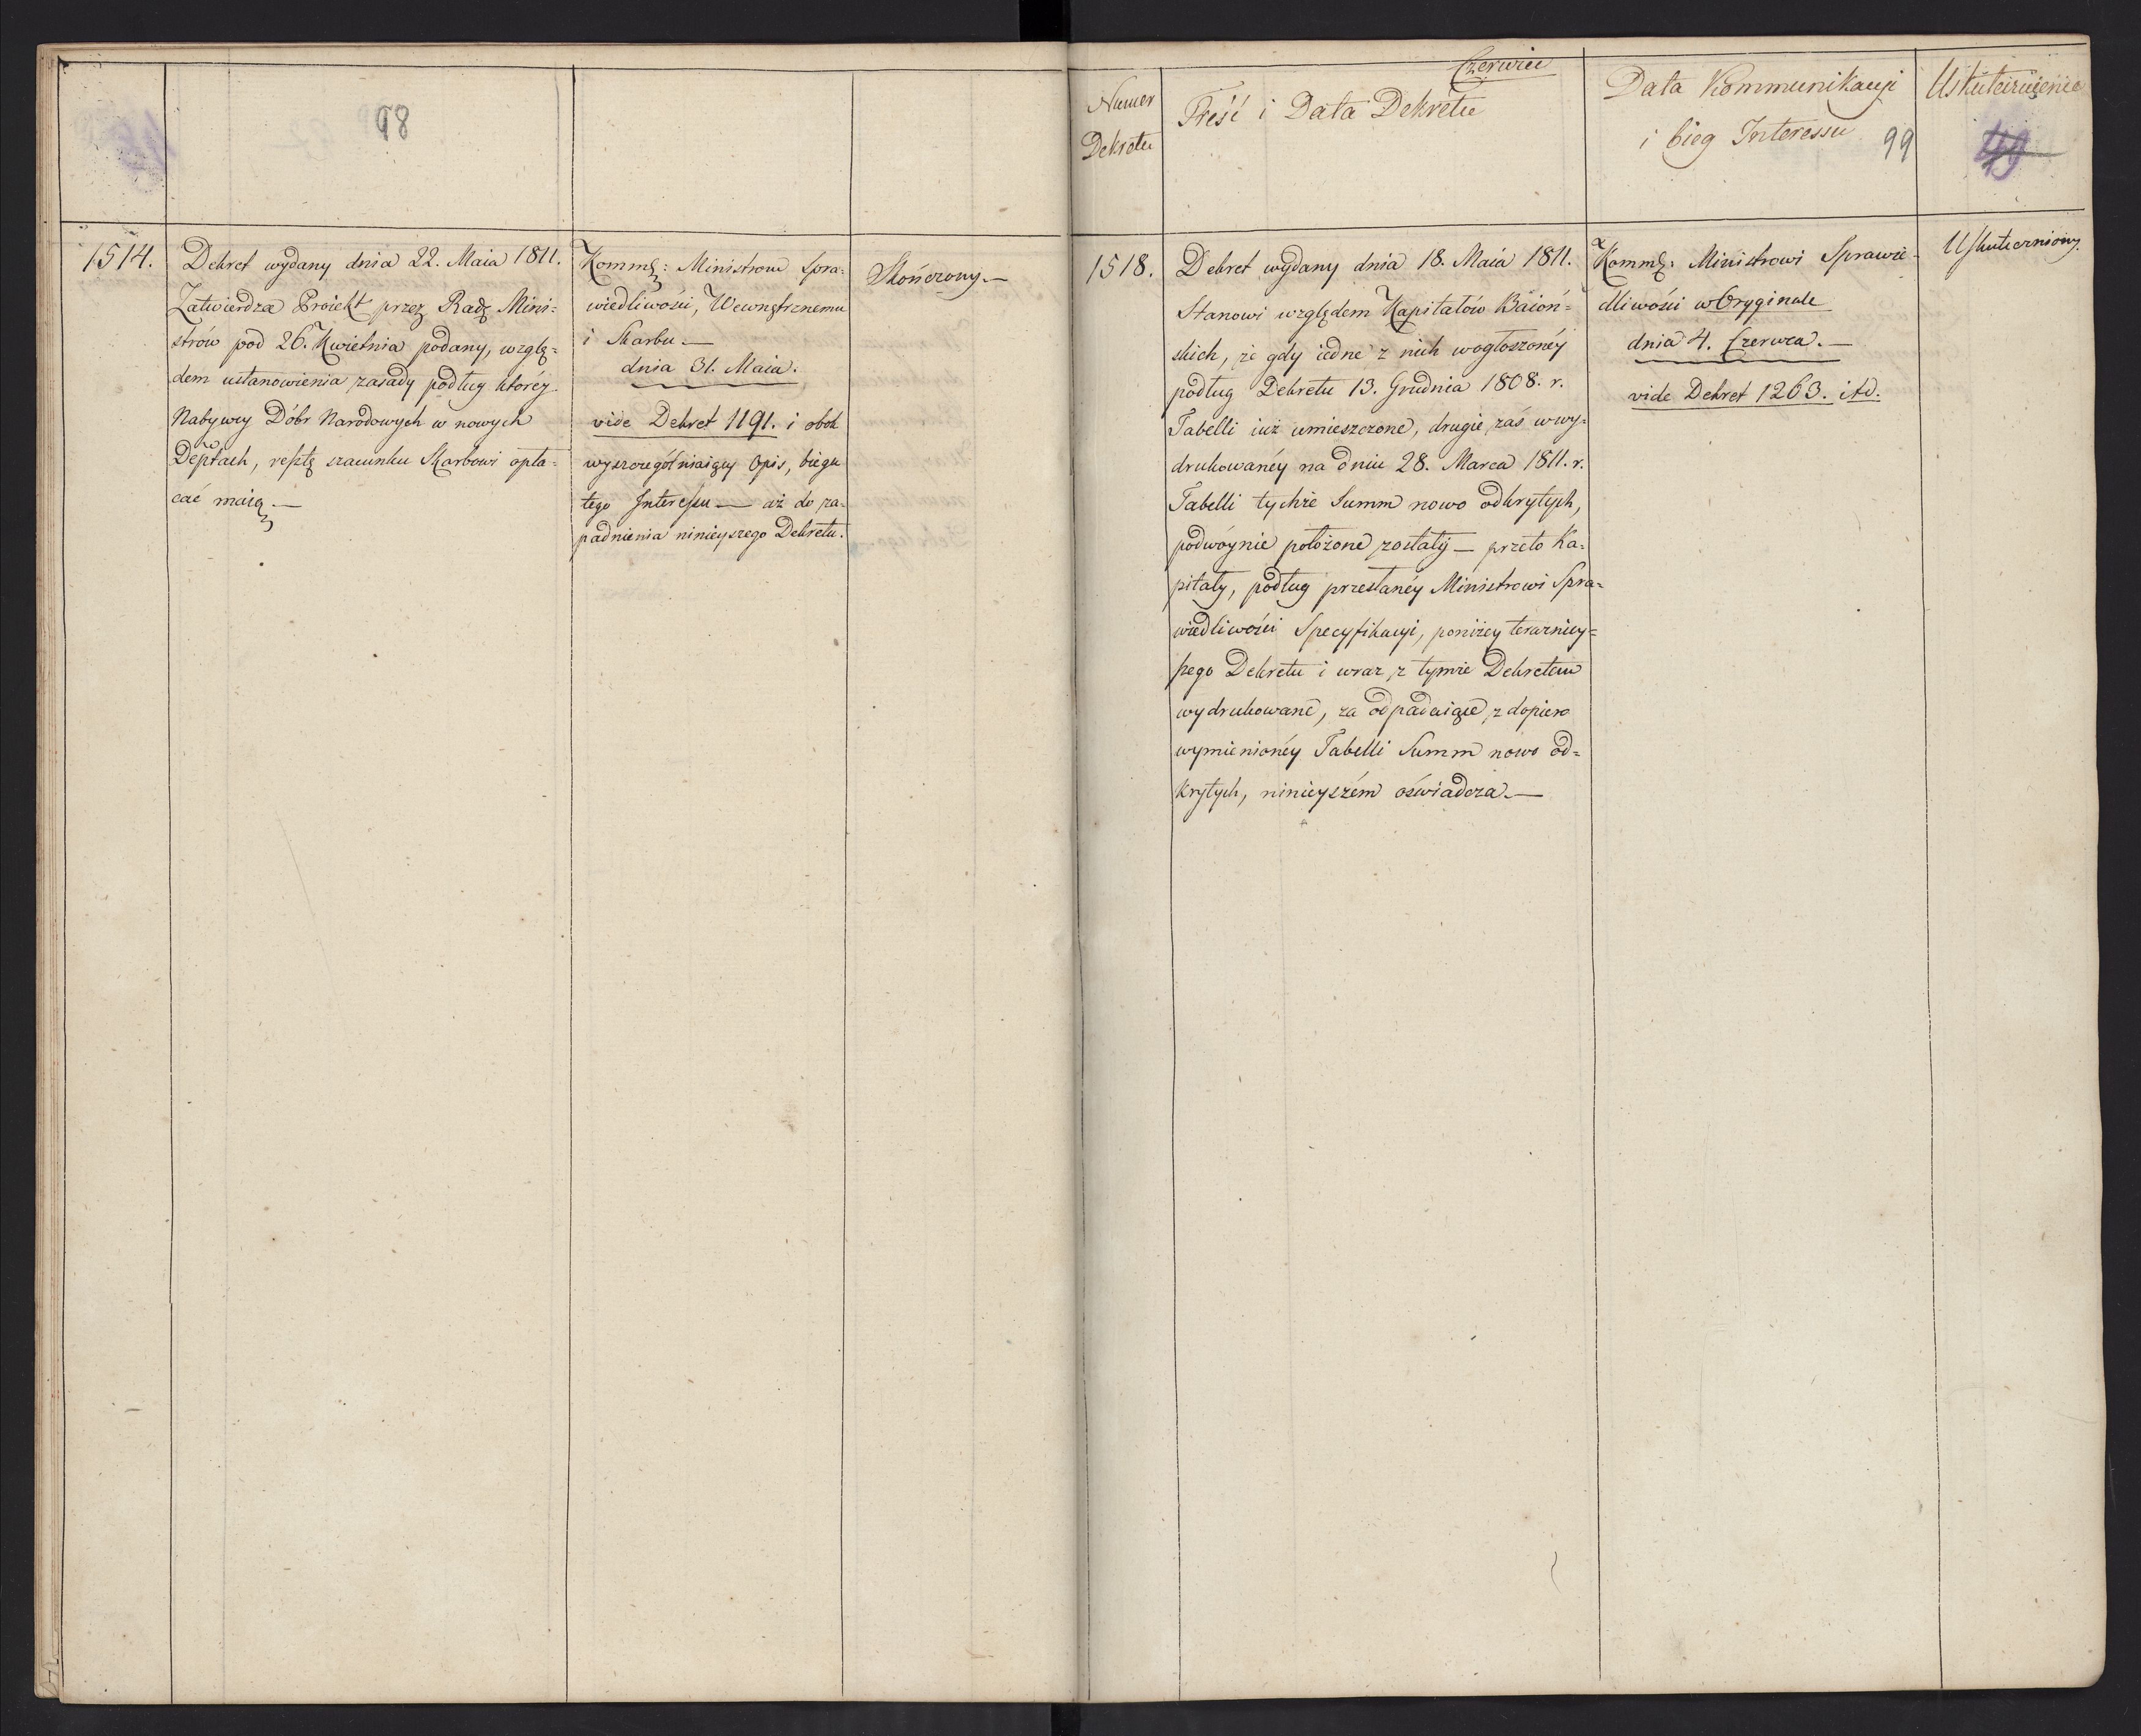 98
1514.
Dekret wydany dnia 22. Maia 1811.
Zatwierdza Proiekt przez Radę Mini=
strów pod 26. Kwietnia podany, wzglę=
dem ustanowienia zasady podług któréy
Nabywcy Dóbr Narodowych w nowych
Deptach, resztę szacunku Skarbowi opła=
cać maią.—
Kommę: Ministrom Spra=
wiedliwości, Wewnętrznemu
i Skarbu.—
dnia 31. Maia.
vide Dekret 1191. i obok
wyszczególniaiący Opis, biegu
tego Interessu — aż do za=
padnienia ninieyszego Dekretu.
Skończony.—
Czerwiec
Numer
Dekretu
Treść i Data Dekretu
Data Kommunikacyi
i bieg Interessu
99
Uskutecznienie
49
1518.
Dekret wydany dnia 18. Maia 1811.
Stanowi względem Kapitałów Baioń=
skich, że gdy iedne z nich wogłoszonéy
podług Dekretu 13. Grudnia 1808. r.
Tabelli iuż umieszczone, drugie zaś wwy=
drukowanéy na dniu 28. Marca 1811. r.
Tabelli tychże Summ nowo odkrytych,
podwóynie położone zostały — przeto Ka=
pitały, podług przesłanéy Ministrowi Spra=
wiedliwości Specyfikacyi, poniżey teraźniey=
szego Dekretu i wraz z tymże Dekretem
wydrukowane, za odpadaiące z dopiero
wymienionéy Tabelli Summ nowo od=
krytych, ninieyszém oświadcza.—
Kommę: Ministrowi Sprawie=
dliwości wOryginale
dnia 4. Czerwca.—
vide Dekret 1263. itd.
Uskuteczniony.